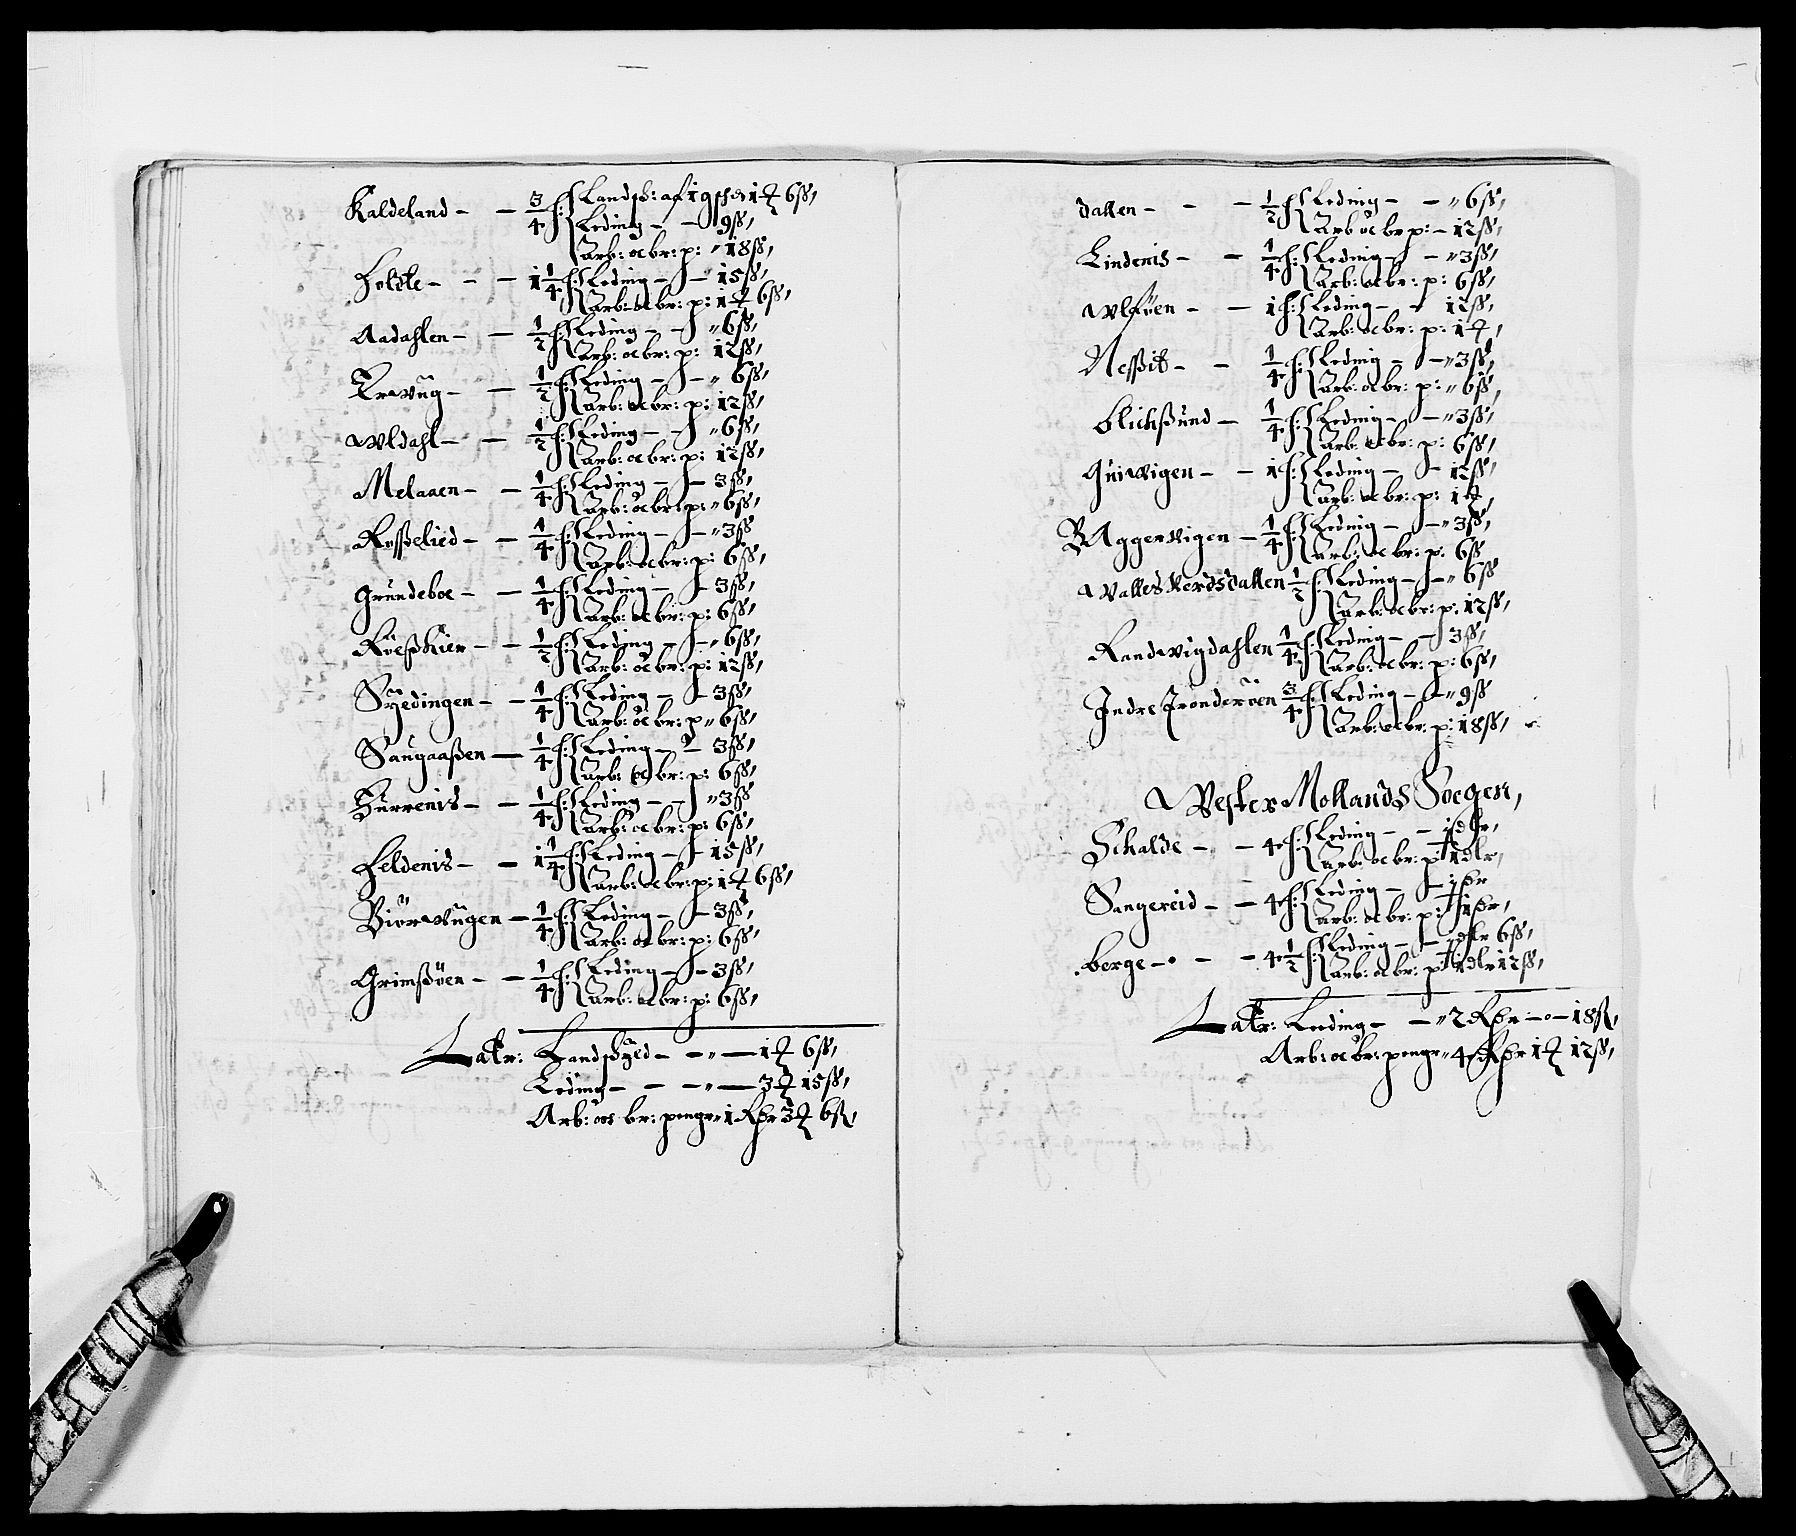 Kaldeland - - 3/4 h: Landsk: af 19 sk er 1 ort 6 ß,
Leding - - 9 ß,
Arb: oc br: p: " 18 ß,
Foldte - - - 1 1/4 h: Leding - - 15 ß,
Arb: oc br: p: 1 ort 6 ß,
Aadahlen - - 1/2 h: Leding - - " 6 ß,
Arb: oc br: p: 12 ß,
Krwiig - - 1/2 h: Leding - - " 6 ß,
Arb: oc br: p: 12 ß,
Wldahl - - 1/2 h: Leding - - " 6 ß,
Arb: oc br: p: 12 ß,
Melaaen - - 1/4 h: Leding - - 3 ß,
Arb: oc br: p: " 6 ß,
Rosselied - - 1/4 h: Leding - - " 3 ß
Arb: oc br: p: 6 ß,
Grundeboe - - 1/4 h: Leding - - 3 ß,
Arb: oc br: p: 6 ß,
Röeßkier - - 1/2 h: Leding - - " 6 ß,
Arb: oc br: p: 12 ß,
Syedingen - - 1/4 h: Leding - - 3 ß,
Arb: oc br: p " 6 ß,
Saugaaßen - 1/4 h: Leding - - 3 ß,
Arb: oc br: p: 6 ß,
Hurrenis - - 1/4 h: Leding - - " 3 ß
Arb: oc br: p: 6 ß,
Feldenis - - 1 1/4 h: Leding - - 15 ß,
Arb: oc br: p: 1 ort 6 ß,
Biörwugen - 1/4 h: Leding - - 3 ß,
Arb: oc br: p: 6 ß,
Grimßöen - - 1/4 h: Leding - - 3 ß,
Arb: oc br: p: 6 ß,
Latr: Landskyld - - " - 1 ort 6 ß,
Leding - - - " - 3 ort 15 ß,
Arb: oc br: penge " 1 Rdr 3 ort 6 ß,
Dallen - - - 1/2 h: Leding - - " 6 ß,
Arb oc br p: - 12 ß,
Lindenis - - 1/4 h: Leding - - " 3 ß,
Arb: oc br: p: 6 ß,
Wlföen - - 1 h: Leding - - 12 ß,
Arb: oc br: p: 1 ort,
Nesßit - - 1/4 h: Leding - - " 3 ß,
Arb: oc br: p: " 6 ß,
Blichßund - 1/4 h: Leding - - " 3 ß,
Arb: oc br: p: 6 ß,
Guiwigen - - 1 h: Leding - - 12 ß,
Arb: oc br: p: 1 ort,
Aggerwigen - 1/4 h: Leding - - " 3 ß,
Arb: oc br: p: 6 ß
Walleskerdsdallen 1/2 h: Leding - - " 6 ß
Arb: oc br: p: 12 ß,
Randwigdahlen 1/4 h: Leding - - 3 ß,
Arb: oc br: p: 6 ß,
Indre Tronderöen 3/4 h: Leding - - " 9 ß
Arb: oc br: p: 18 ß,
Wester Mollands Soegen,
Schalde - - 4 h: Leding - - 1 dlr,
Arb: oc br: p 1 dlr,
Sangereid - - 4 h: Leding - - 1 dr
Arb: oc br: p: 1 dr,
Berge - - - 4 1/2 h: Leding - - 1 dlr 6 ß,
Arb: oc br: p 1 dlr 12 ß,
Latr: Leding - - " 2 Rdr - o - 18 ß,
Arb: oc br: penge " 4 Rdr 1 ort 12 ß,